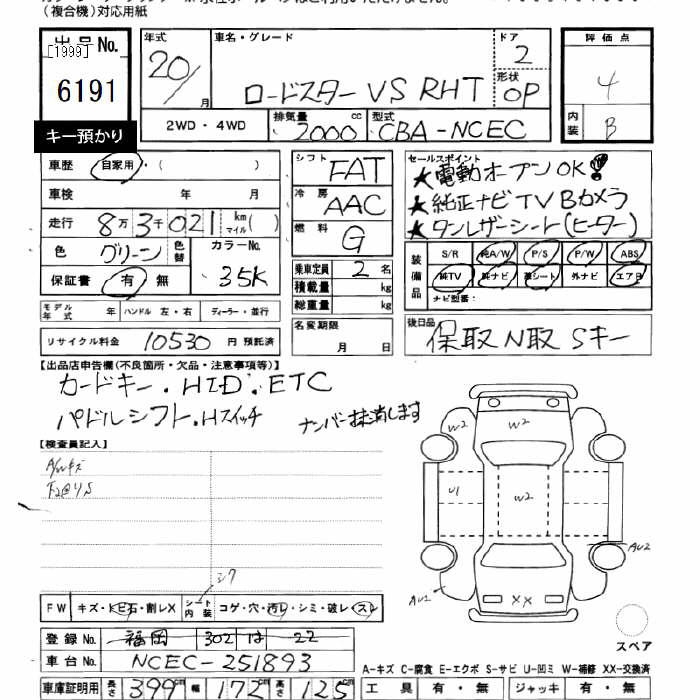 (複合機)対応用紙
出品No.
[1999]
6191
キー預かり
年式 20/ 月
車名・グレード
ロードスター VS RHT
ドア 2
形状 OP
評価点 4
内装 B
2WD・4WD
排気量 2000 cc
型式 CBA-NCEC
車歴 自家用・( )
車検 年 月
走行 8万3千021 km マイル( )
色 グリーン 色替
カラーNo. 35K
保証書 有・無
シフト FAT
冷房 AAC
燃料 G
乗車定員 2 名
積載量 kg
総重量 kg
セールスポイント
★電動オープンOK!
★純正ナビTV Bカメラ
★タンレザーシート(ヒーター)
装備品
S/R 純A/W P/S P/W ABS
純TV 純ナビ 革シート 外ナビ エアB
ナビ型番:
モデル年式 年 ハンドル 左・右 ディーラー・並行
名変期限 月 日
後日品 保取N取Sキー
リサイクル料金 10530 円 預託済
【出品店申告欄(不良箇所・欠品・注意事項等)】
カードキー.HID.ETC
パドルシフト.Hスイッチ ナンバー抹消します
【検査員記入】
A/Wキズ
W2 W2
U1 W2
AU2
AU2
XX
スペア
シワ
FW キズ・トビ石・割レX
シート内装 コゲ・穴・汚レ・シミ・破レ・スレ
登録No. 福岡 302 は 22
車台No. NCEC-251893
車庫証明用 長さ 399 幅 172 高さ 125
A-キズ C-腐食 E-エクボ S-サビ U-凹ミ W-補修 XX-交換済
工具 有・無 ジャッキ 有・無